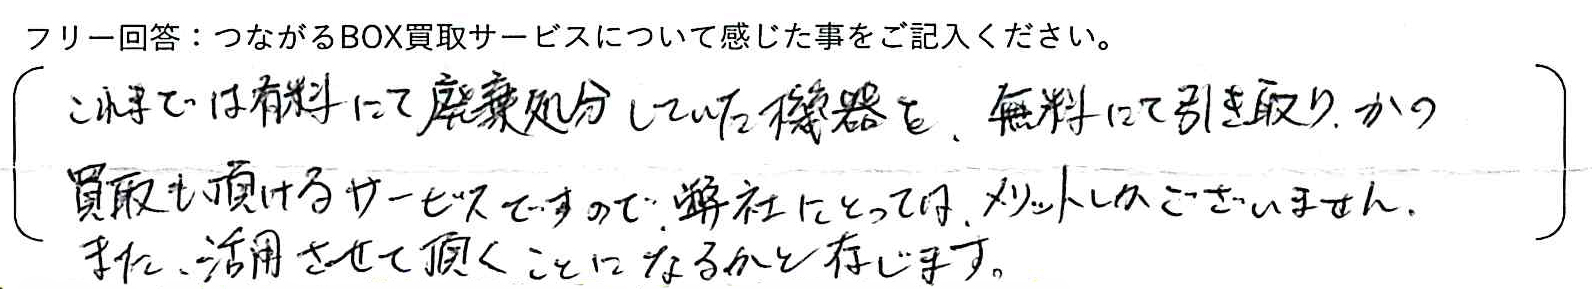 フリー回答：つながるBOX買取サービスについて感じた事をご記入ください。
これまでは有料にて廃棄処分していた機器を、無料にて引き取り、かつ
買取も頂けるサービスですので、弊社にとっては、メリットしかございません。
また、活用させて頂くことになるかと存じます。